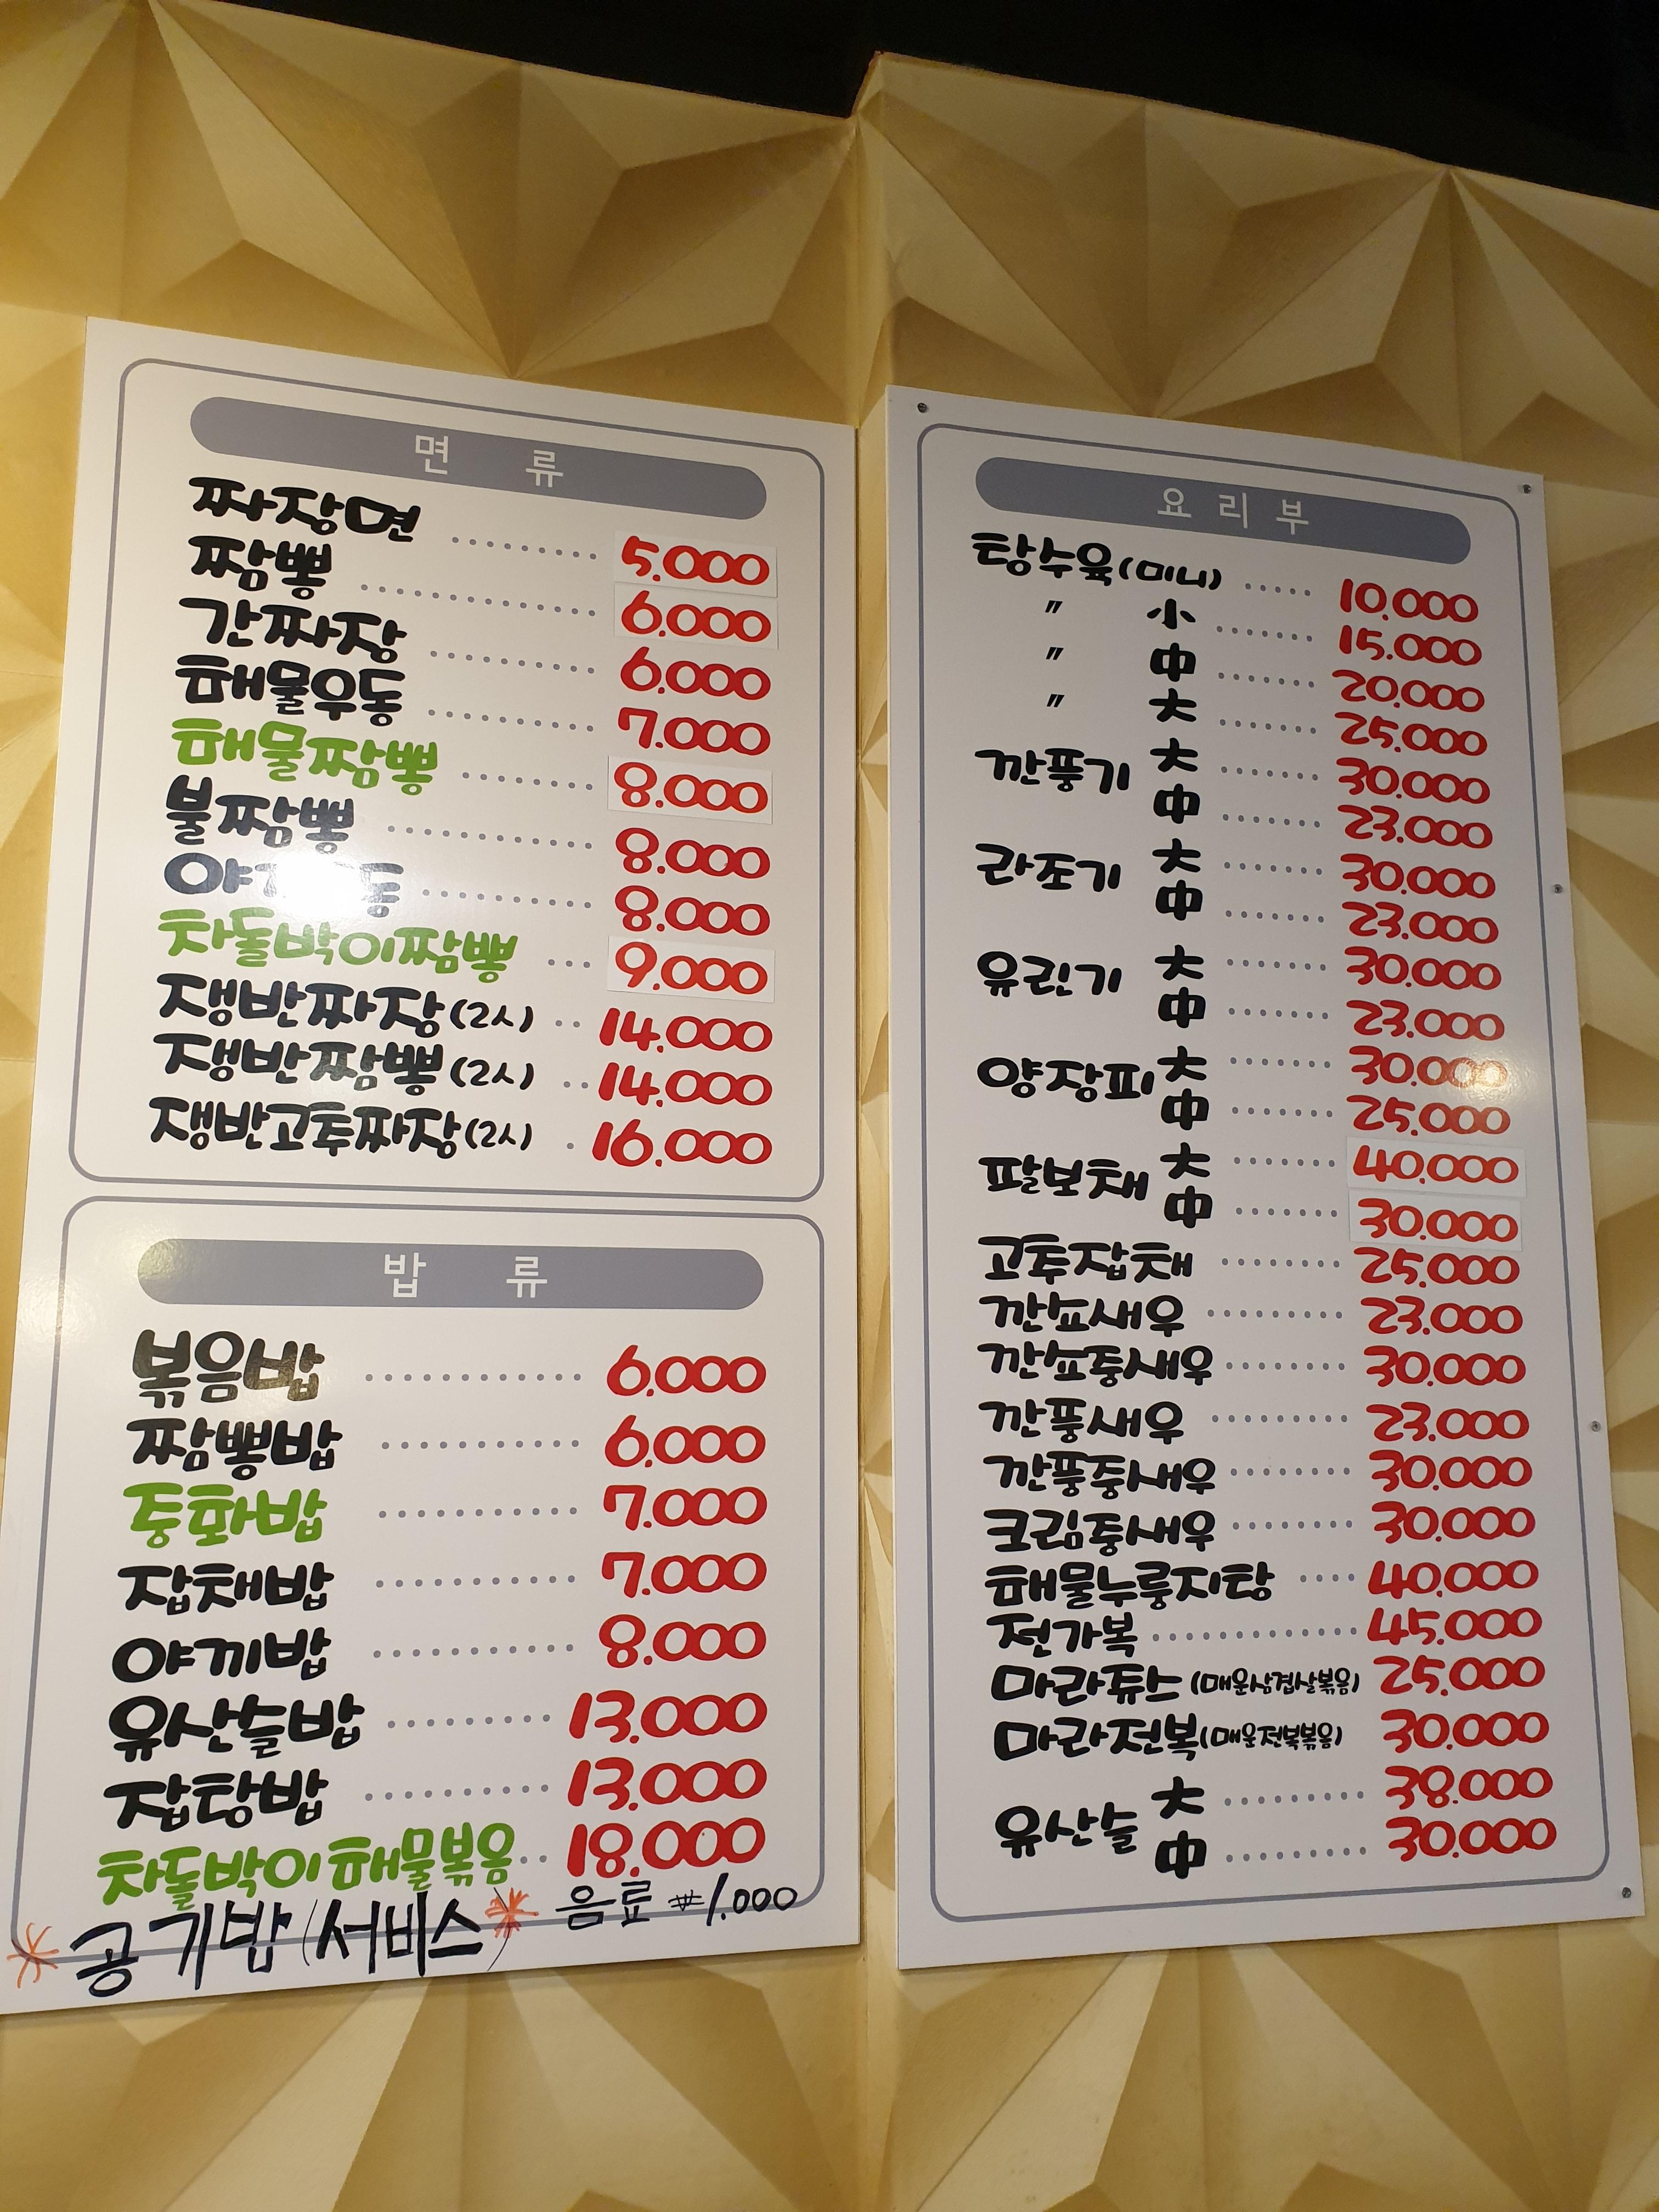 면 류
짜장면 ········· 5.000
짬뽕 ·············· 6.000
간짜장 ·········· 6.000
해물우동 ·········· 7.000
해물짬뽕 ········ 8.000
불짬뽕 ············ 8.000
동 ·········· 8.000
차돌박이짬뽕 ··· 9.000
쟁반짜장(2人) ·· 14.000
쟁반짬뽕(2人) ·· 14.000
쟁반고추짜장(2人) · 16.000
밥 류
볶음밥 ············· 6.000
짬뽕밥 ············ 6.000
중화밥 ············ 7.000
잡채밥 ············ 7.000
야끼밥 ············ 8.000
유산슬밥 ·········· 13.000
잡탕밥 ··········· 13.000
차돌박이해물볶음 ·· 18.000
공기밥(서비스) 음료 ₩1.000
요 리 부
탕수육(미니) ····· 10.000
〃 小 ······· 15.000
〃 中 ······· 20.000
〃 大 ······· 25.000
깐풍기 大 ······· 30.000
中 ······· 23.000
라조기 大 ······· 30.000
中 ······· 23.000
유린기 大 ······· 30.000
中 ······· 23.000
양장피 大 ······· 30.000
中 ······· 25.000
팔보채 大 ······· 40.000
中 ······· 30.000
고추잡채 ········· 25.000
깐쇼새우 ·········· 23.000
깐쇼중새우 ········· 30.000
깐풍새우 ·········· 23.000
깐풍중새우 ········· 30.000
크림중새우 ········· 30.000
해물누룽지탕 ···· 40.000
전가복 ·············· 45.000
마라쥬스 (매운삼겹살볶음) 25.000
마라전복(매운전복볶음) 30.000
유산슬 大 ·········· 38.000
中 ·········· 30.000